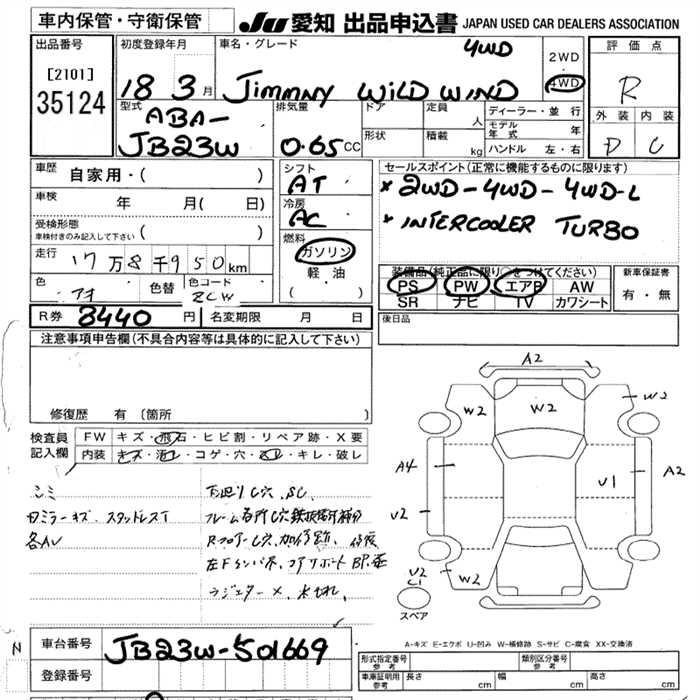 車内保管・守衛保管 JU 愛知 出品申込書 JAPAN USED CAR DEALERS ASSOCIATION
出品番号
[2101]
35124
初度登録年月
18 3 月
車名・グレード
4WD
Jimmny WILD WIND
2WD
4WD
評価点
R
外装 内装
D C
型式
ABA-
JB23W
排気量
0.65 CC
ドア
形状
定員 人
積載 kg
ディーラー・並行
モデル年式 年
ハンドル 左・右
車歴 自家用・( )
車検 年 月( 日)
受検形態
車検付きのみ記入して下さい ( )
走行 17万8千950km
色 色替 色コード
ZCW
シフト
AT
冷房
AC
燃料
ガソリン
軽油
( )
セールスポイント(正常に機能するものに限ります)
* 2WD-4WD-4WD-L
* INTERCOOLER TURBO
装備品(純正品に限り○をつけてください)
PS PW エアB AW
SR ナビ TV カワシート
新車保証書
有・無
R券 8440 円 名変期限 月 日
後日品
注意事項申告欄(不具合内容等は具体的に記入して下さい)
修復歴 有 (箇所 )
検査員
記入欄
FW キズ・飛石・ヒビ割・リペア跡・X要
内装 キズ・汚レ・コゲ・穴・ ・キレ・破レ
シミ
ミラーキズ. スタッドレスT
各AU
下廻りC穴. SC.
フレーム各所C穴
RフロアーC穴.
ラジエター×. 水もれ.
A2
W2
W2
W2
A4
A2
U1
U2
U2
C1
W2
スペア
A-キズ E-エクボ U-凹み W-補修跡 S-サビ C-腐食 XX-交換済
N
車台番号 JB23W-501669
登録番号
形式指定番号
参考
類別区分番号
参考
車庫証明用
参考
長さ cm 幅 cm 高さ cm